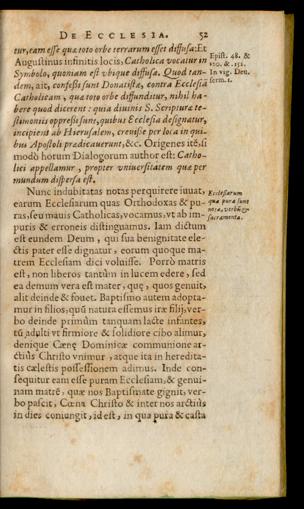 DE ECCLESIA. 52
tur, eam esse quæ toto orbe terrarum esset diffusa: Et
Augustinus infinitis locis, Catholica vocatur in
Symbolo, quoniam est vbique diffusa. Quod tan-
dem, ait, confessi sunt Donatistæ, contra Ecclesiã
Catholicam, quæ toto orbe diffunditur, nihil ha-
bere quod dicerent: quia diuinis S. Scripturæ te-
stimoniis oppressi sunt, quibus Ecclesia designatur,
incipiens ab Hierusalem, crevisse per loca in qui-
bus Apostoli prædicauerunt, &c. Origenes itẽ, si
modò horum Dialogorum author est: Catho-
lici appellamur, propter vniuersitatem quæ per
mundum dispersa est.
Nunc indubitatas notas perquirere iuuat,
earum Ecclesiarum quas Orthodoxas & pu-
ras, seu mauis Catholicas, vocamus, vt ab im-
puris & erroneis distinguamus. Iam dictum
est eundem Deum, qui sua benignitate ele-
ctis pater esse dignatur, eorum quoque ma-
trem Ecclesiam dici voluisse. Porrò matris
est, non liberos tantùm in lucem edere, sed
ea demum vera est mater, quę, quos genuit,
alit deinde & fouet. Baptismo autem adopta-
mur in filios, quũ natura essemus iræ filij, ver-
bo deinde primùm tanquam lacte infantes,
tũ adulti vt firmiore & solidiore cibo alimur,
denique Cænę Dominicæ communione ar-
ctiùs Christo vnimur, atque ita in heredita-
tis cælestis possessionem adimus. Inde con-
sequitur eam esse puram Ecclesiam, & genui-
nam matrẽ, quæ nos Baptismate gignit, ver-
bo pascit, Cæna Christo & inter nos arctiùs
in dies coniungit, id est, in qua pura & casta
Epist. 48. &
170. & 152.
In vig. Deu.
serm. 1.
Ecclesiarum
quæ puræ sunt
notæ, verbũ &
sacramenta.